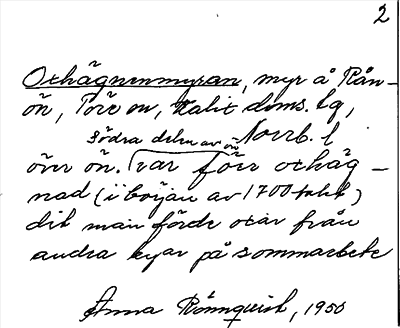 2
Oxhägnenmyran, myr å Rån-
ön, Töre sn, Kalix doms. lg,
Södra delen av ön Norrb. l
övre ön. var förr oxhäg-
nad (i början av 1700talet)
dit man förde oxar från
andra byar på sommarbete
Anna Rönnqvist, 1950